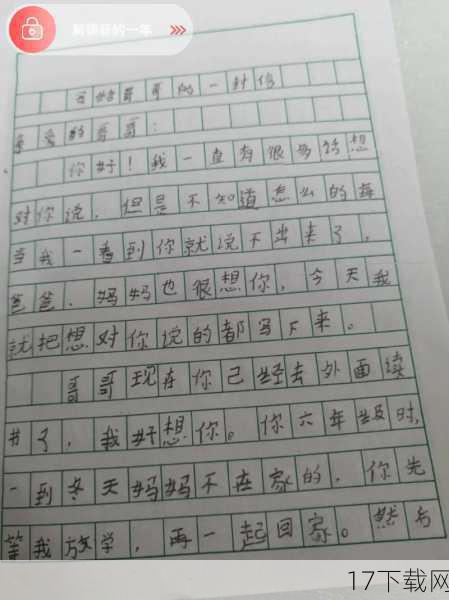 解锁新的一年
给哥哥的一封信
亲爱的哥哥：
你好！我一直有很多话想
对你说，但是不知道怎么的每
当我一看到你就说不出来了，
爸爸、妈妈也很想你，今天我
就把想对你说的都写下来。
哥哥现在你已经去外面读
书了，我好想你。你六年级时，
一到冬天妈妈不在家的，你先
等我放学，再一起回家。然后
17下载网